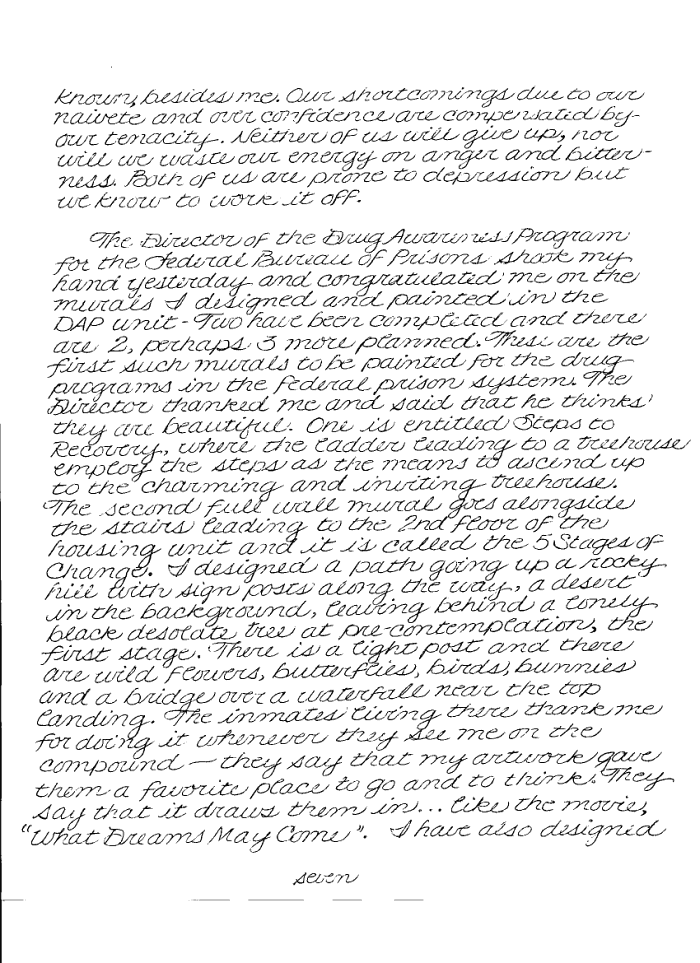 known, besides me. Our shortcomings due to our
naivete and over confidence are compensated by
our tenacity. Neither of us will give up, nor
will we waste our energy on anger and bitter-
ness. Both of us are prone to depression but
we know to work it off.
The Director of the Drug Awareness Program
for the Federal Bureau of Prisons shook my
hand yesterday and congratulated me on the
murals I designed and painted in the
DAP unit - Two have been completed and there
are 2, perhaps 3 more planned. These are the
first such murals to be painted for the drug
programs in the federal prison system. The
Director thanked me and said that he thinks
they are beautiful. One is entitled Steps to
Recovery, where the ladder leading to a treehouse
employ the steps as the means to ascend up
to the charming and inviting treehouse.
The second full wall mural goes alongside
the stairs leading to the 2nd floor of the
housing unit and it is called the 5 Stages of
Change. I designed a path going up a rocky
hill with sign posts along the way, a desert
in the background, leaving behind a lonely
black desolate tree at pre-contemplation, the
first stage. There is a light post and there
are wild flowers, butterflies, birds, bunnies
and a bridge over a waterfall near the top
landing. The inmates living there thank me
for doing it whenever they see me on the
compound — they say that my artwork gave
them a favorite place to go and to think. They
say that it draws them in... like the movie,
"What Dreams May Come". I have also designed
seven